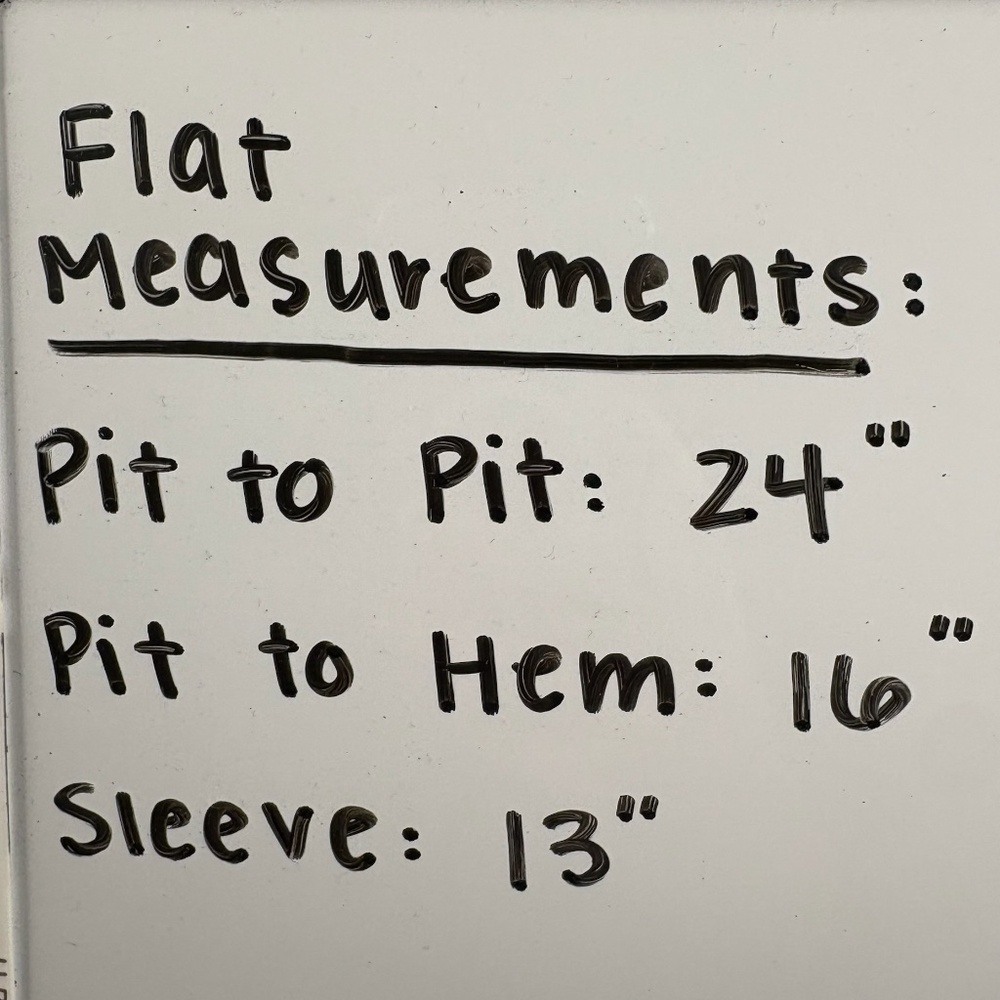 Flat
Measurements:
Pit to Pit: 24"
Pit to Hem: 16"
Sleeve: 13"